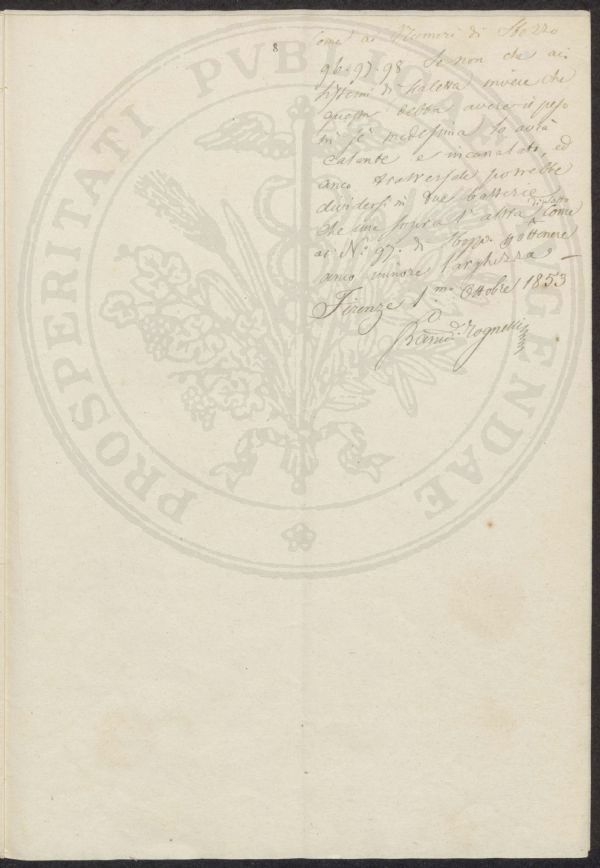 8
come ai Numeri di Stozzo
96-97-98 Se non che ai
sistemi di Paletta invece che
questa debba avere il peso
in se medesima lo avrà
calante e incanalato, ed
anco trasversale potrebbe
dividersi in due batterie
che una sopra l'altra di piatto come
ai N.° 97. di Stozzo ottenere
anco minore larghezza —
Firenze 1.mo Ottobre 1853
Tognetti
PROSPERITATI PVBLICAE AVGENDAE